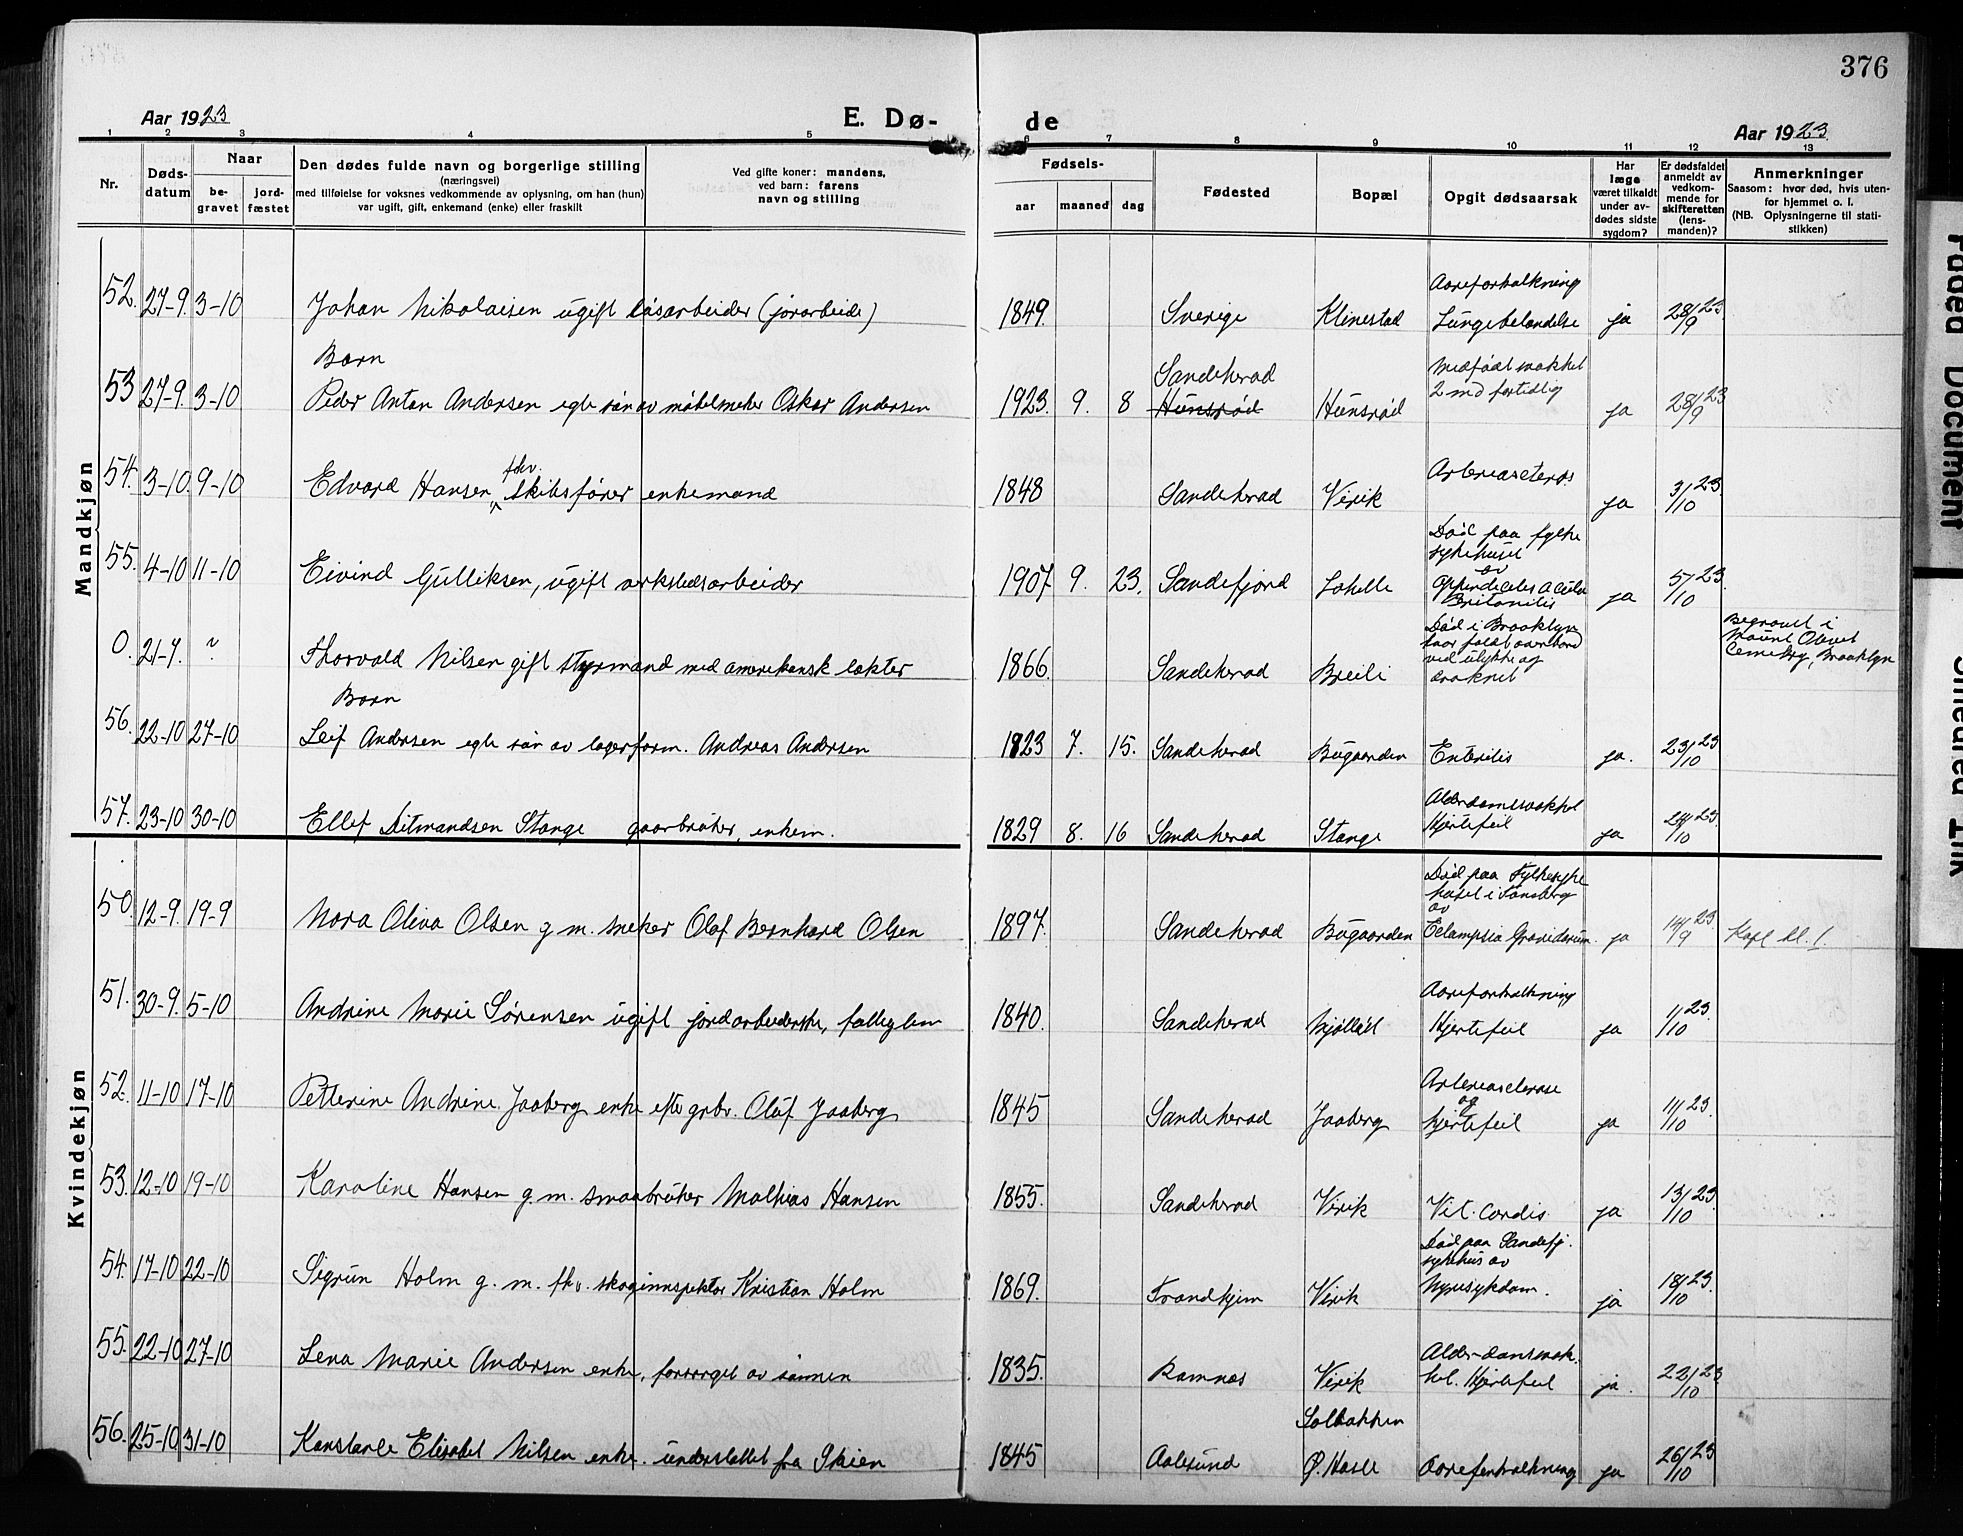 376
Aar 1923
E. Dø-
de
Aar 1923
1 2 3 4 5 6 7 8 9 10 11 12 13
Nr.
Døds-
datum
Naar
be-
gravet
jord-
fæstet
Den dødes fulde navn og borgerlige stilling
(næringsvei)
med tilføielse for voksnes vedkommende av oplysning, om han (hun)
var ugift, gift, enkemand (enke) eller fraskilt
Ved gifte koner: mandens,
ved barn: farens
navn og stilling
Fødsels-
aar
maaned
dag
Fødested
Bopæl
Opgit dødsaarsak
Har
læge
været tilkaldt
under av-
dødes sidste
sygdom?
Er dødsfaldet
anmeldt av
vedkom-
mende for
skifteretten
(lens-
manden)?
Anmerkninger
Saasom: hvor død, hvis uten-
for hjemmet o. l.
(NB. Oplysningerne til stati-
stikken)
Mandkjøn
Aareforkalkning
52. 27-9. 3-10 Johan Nikolaisen ugift løsarbeider (jorarbeide) 1849. Sverige Klinestad Lungebetændelse ja 28/9 23.
Barn
Sandeherad Medfødt svakhet
53 27-9. 3-10 Peder Anton Andersen egte søn av møbelsneker Oskar Andersen 1923. 9. 8 Hunsrød Hunsrød 2 md fortidlig ja 28/9 23
fhv.
54. 3-10. 9-10 Edvard Hansen, skibsfører enkemand 1848 Sandeherad Virik ja 3/10 23.
Død paa fylke
sykehuset
av
55. 4-10 11-10 Eivind Gulliksen, ugift verkstedsarbeider 1907. 9. 23. Sandefjord Lahelle ja 5/10 23.
Død i Brooklyn
Begravet i
Mount Olivet
Cemetry, Brooklyn
0. 21-7. ? Thorvald Nilsen gift styrmand med amerikansk lekter 1866. Sandeherad Breili
ved ulykke og
druknet
Barn
56. 22-10 27-10 Leif Andersen egte søn av lagerform. Andreas Andersen 1923 7. 15. Sandeherad Bugaarden Enteritis ja. 23/10 23
Alderdomssvakhet
57. 23-10 30-10 Ellef Ditmandsen Stange gaarbruker, enkem. 1829 8. 16 Sandeherad Stange Hjertefeil ja 24/10 23.
Kvindekjøn
Død paa Fylkesyke
huset i Tønsberg
av
50. 12-9. 19-9 Nora Oliva Olsen g. m. sneker Olaf Bernhard Olsen 1897. Sandeherad Bugaarden Eclampsia Gravidarum. ja 14/9 23 Kapl kl. 1.
Aareforkalkning
51. 30-9. 5-10 Andrine Marie Sørensen ugift jordarbeiderske, fattiglem 1840. Sandeherad Mjølløst Hjertefeil ja 1/10 23.
Arteriosclerose
og
52. 11-10 17-10 Petterine Andrine Jaaberg enke efter grbr. Oluf Jaaberg 1845 Sandeherad Jaaberg hjertefeil ja 11/10 23.
53. 12-10 19-10 Karoline Hansen g. m. smaabruker Mathias Hansen 1855. Sandeherad Virik Vit. Cordis. ja 13/10 23.
Død paa Sandefj.
sykehus av
54. 17-10 22-10 Sigrun Holm g. m. fhv. skoginnspektør Kristian Holm 1869. Trondhjem Virik Nyresykdom. ja 18/10 23.
Alderdomssvak-
55. 22-10 27-10 Lena Marie Andersen enke, forsørget av sønnen 1835. Ramnes Virik het. Hjertefeil ja. 22/10 23
Solbakken
56. 25-10 31-10 Konstanse Elisabet Nilsen enke. understøttet fra Skien 1845 Aalesund Ø. Hasle Aareforkalkning ja 26/10 23
Faded Document
Smeared Ink